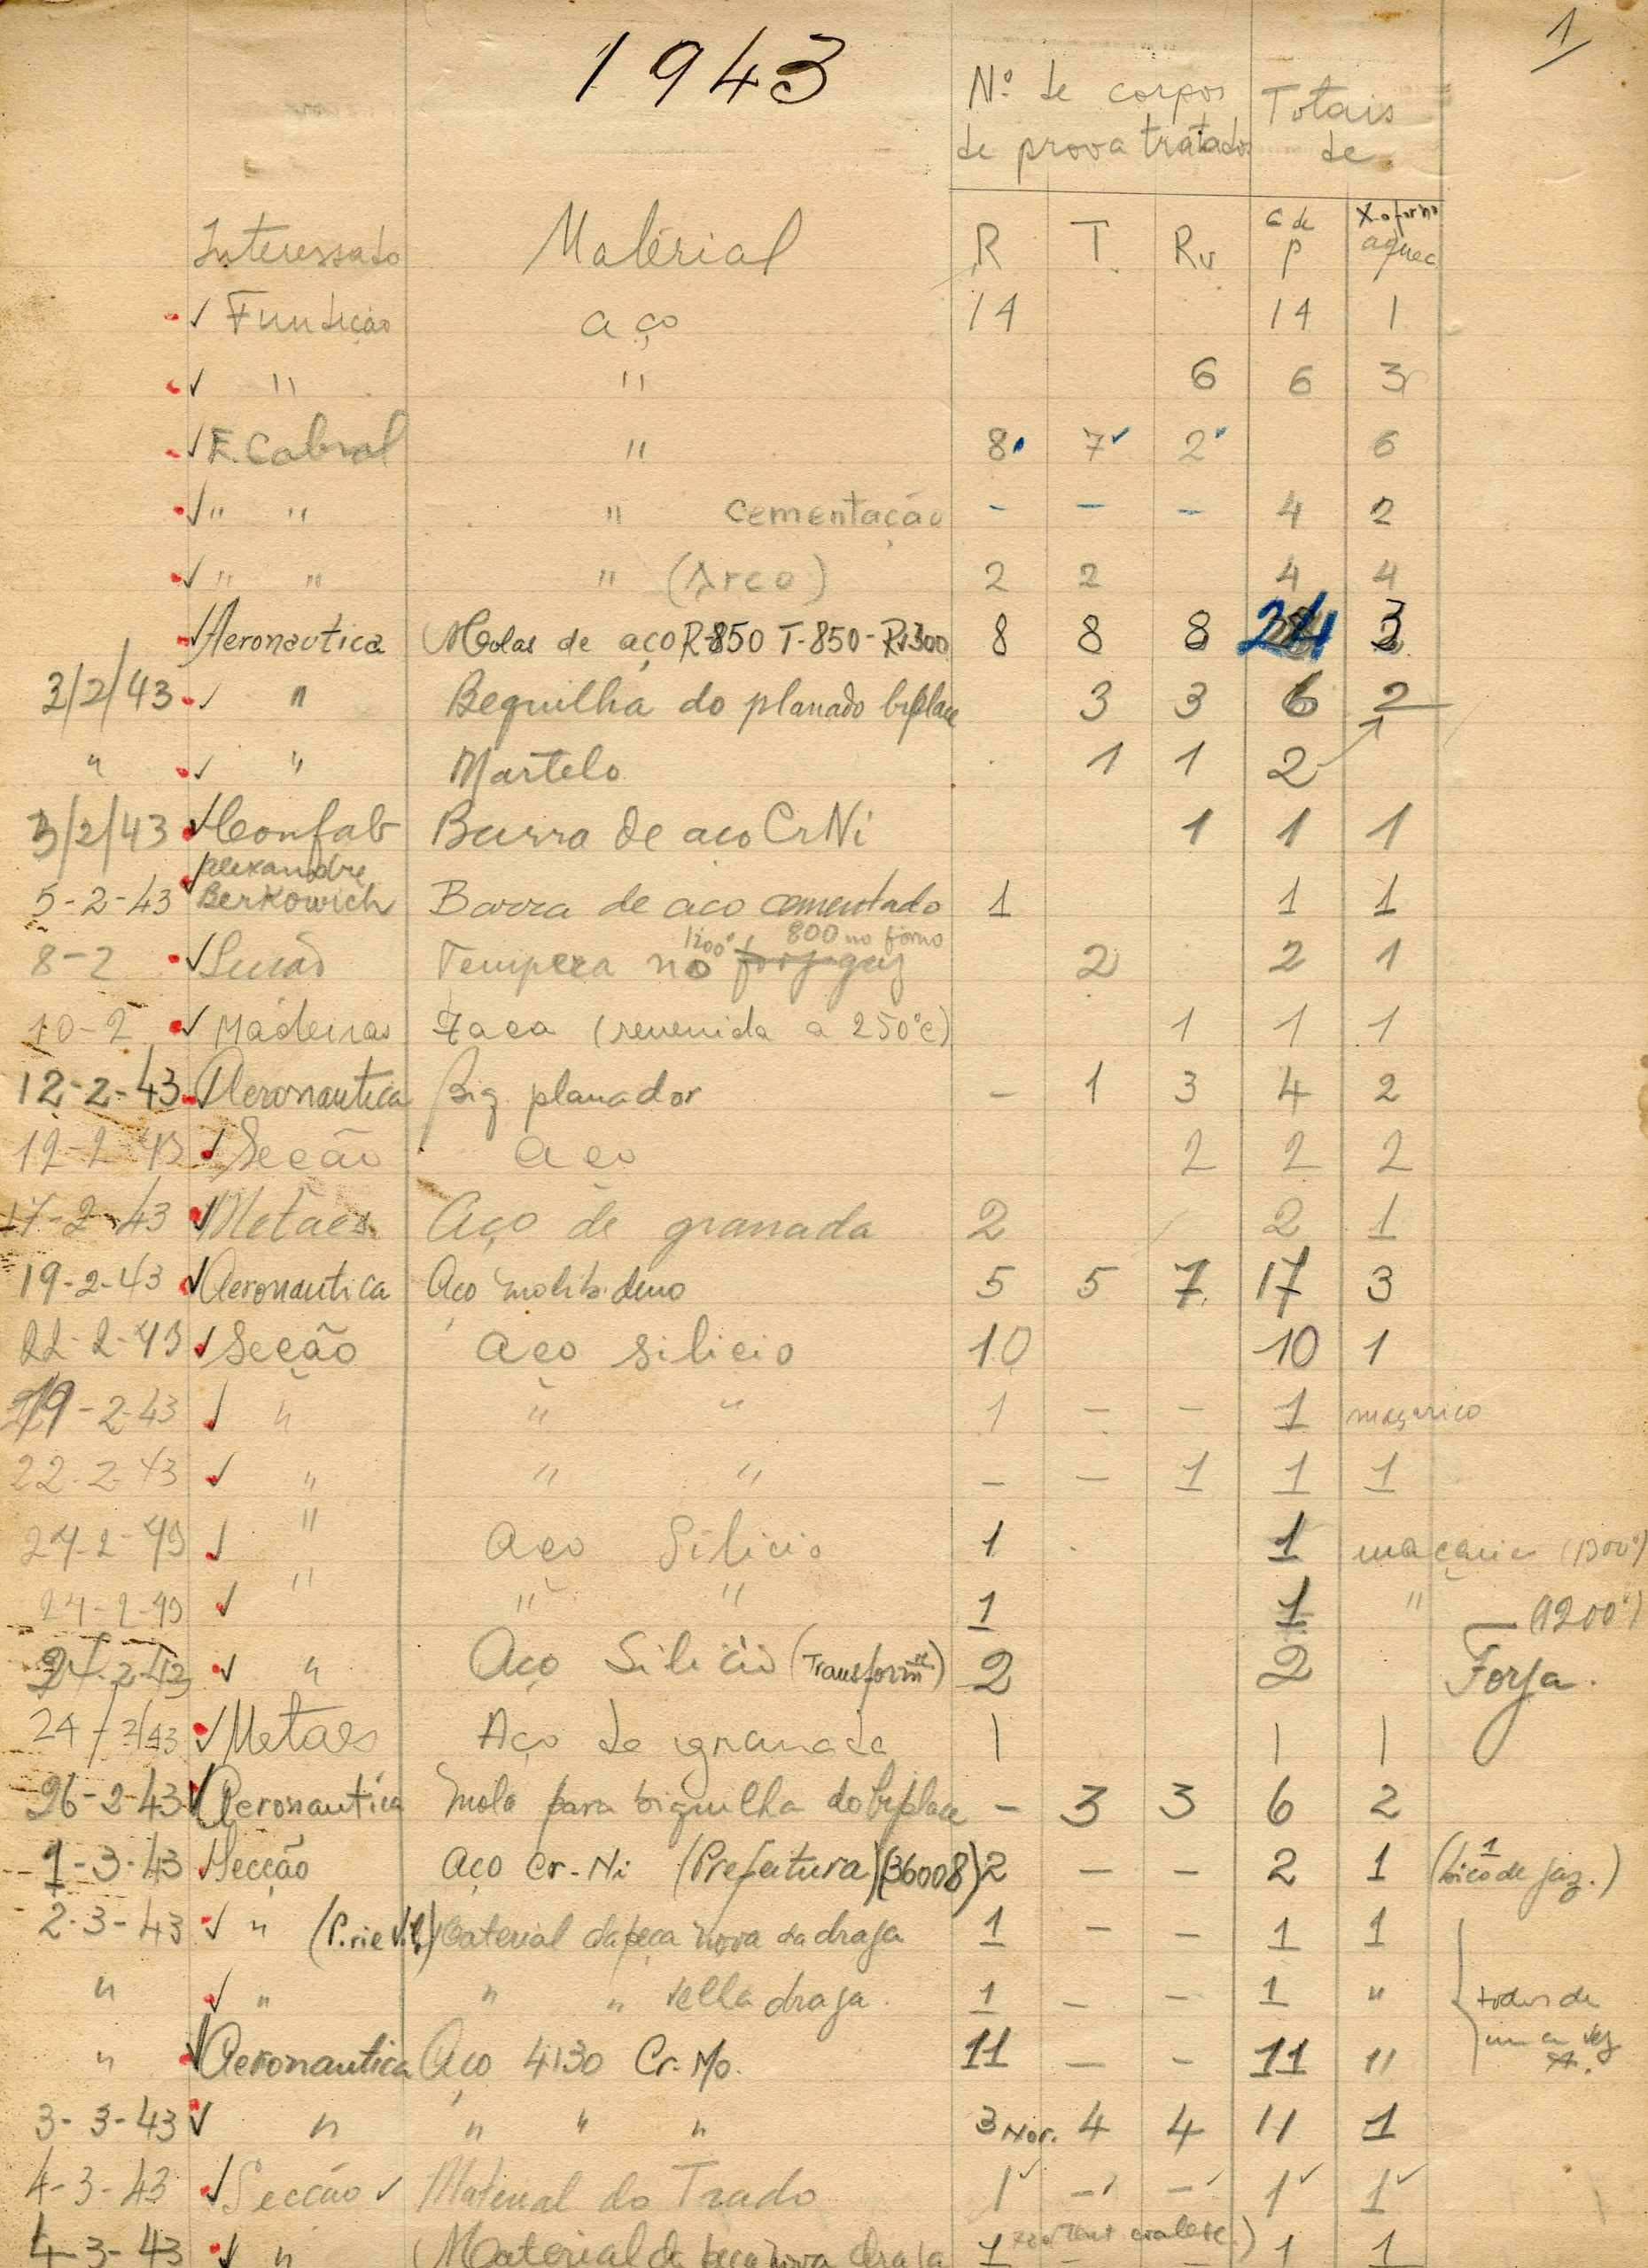 1
1943
Nº de corpos de prova tratados Totais de
Interessado Material R T Rv C de p X o forno aquec
✓ Fundição aço 14 14 1
✓ " " 6 6 3
✓ F. Cabral " 8 7 2 6
✓ " " " cementação - - - 4 2
✓ " " " (Arco) 2 2 4 4
✓ Aeronautica Molas de aço R-850 T-850-Rv300 8 8 8 24 3
3/2/43 ✓ " Bequilha do planado biplace 3 3 6 2
" ✓ " Martelo 1 1 2
3/2/43 ✓ Confab Barra de aco CrNi 1 1 1
Alexandre
5-2-43 ✓ Berkowich Barra de aco cementado 1 1 1
1200° 800 no forno
8-2 ✓ Tempera no 2 2 1
10-2 ✓ Madeiras Faca (revenida a 250°C) 1 1 1
12-2-43 Aeronautica Biq. planador - 1 3 4 2
12-2-43 ✓ Secão aço 2 2 2
17-2-43 ✓ Metaes Aço de granada 2 2 1
19-2-43 ✓ Aeronautica Aço molibideno 5 5 7 17 3
22-2-43 ✓ Secão aço silicio 10 10 1
19-2-43 ✓ " " " 1 - - 1 maçarico
22-2-43 ✓ " " " - - 1 1 1
24-2-43 ✓ " Aço Silicio 1 1 maçarico (1300°)
24-2-43 ✓ " " " 1 1 " (1200°)
24-2-43 ✓ " Aço Silicio (Transform) 2 2 Forja.
24/2/43 ✓ Metaes Aço de granada 1 1 1
26-2-43 ✓ Aeronautica Mola para biquilha do biplace - 3 3 6 2
1-3-43 Secção Aço Cr-Ni (Prefeitura)(36008) 2 - - 2 1 (1 bico de gaz.)
2-3-43 ✓ " Material da peca nova da draga 1 - - 1 1
" ✓ " " " velha draga. 1 - - 1 "
todos de uma vez
" ✓ Aeronautica Aço 4130 Cr-Mo. 11 - - 11 "
3-3-43 ✓ " " " " 3 Nor. 4 4 11 1
4-3-43 ✓ Secção ✓ Material do Trado 1 ✓ - - 1 ✓ 1 ✓
4-3-43 ✓ " Material da peca nova draga 1 - - 1 1